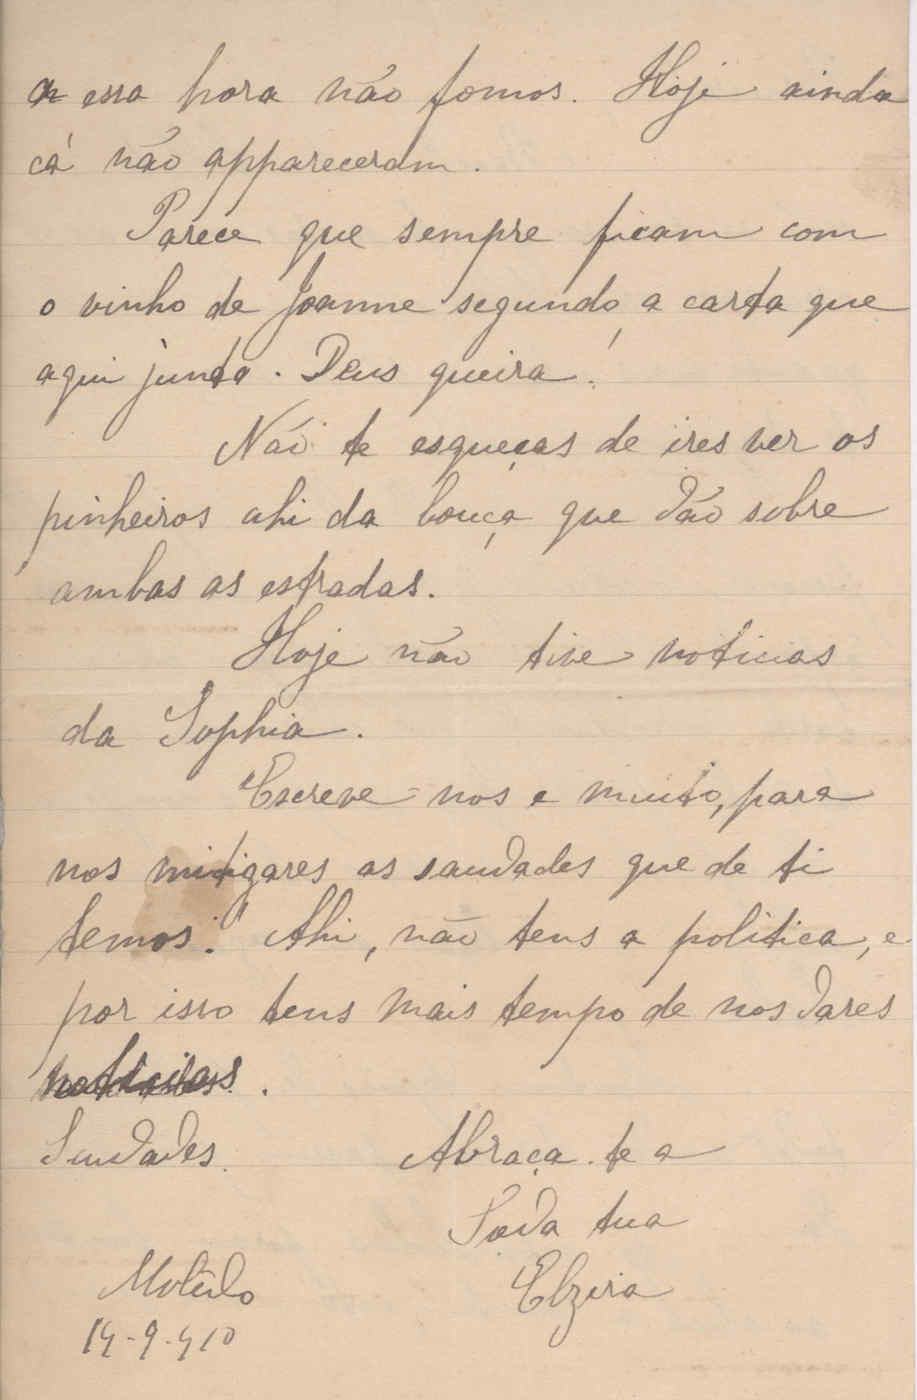 a essa hora não fomos. Hoje ainda
cá não appareceram.
Parece que sempre ficam com
o vinho de Joanne segundo a carta que
aqui junto. Deus queira!
Não te esqueças de ires ver os
pinheiros ahi da bouça que dão sobre
ambas as estradas.
Hoje não tive noticias
da Sophia.
Escreve-nos e muito, para
nos mitigares as saudades que de ti
temos. Ahi, não tens a politica, e
por isso tens mais tempo de nos dares
noticias.
Saudades.
Abraça-te a
Toda tua
Elzira
14-9-910